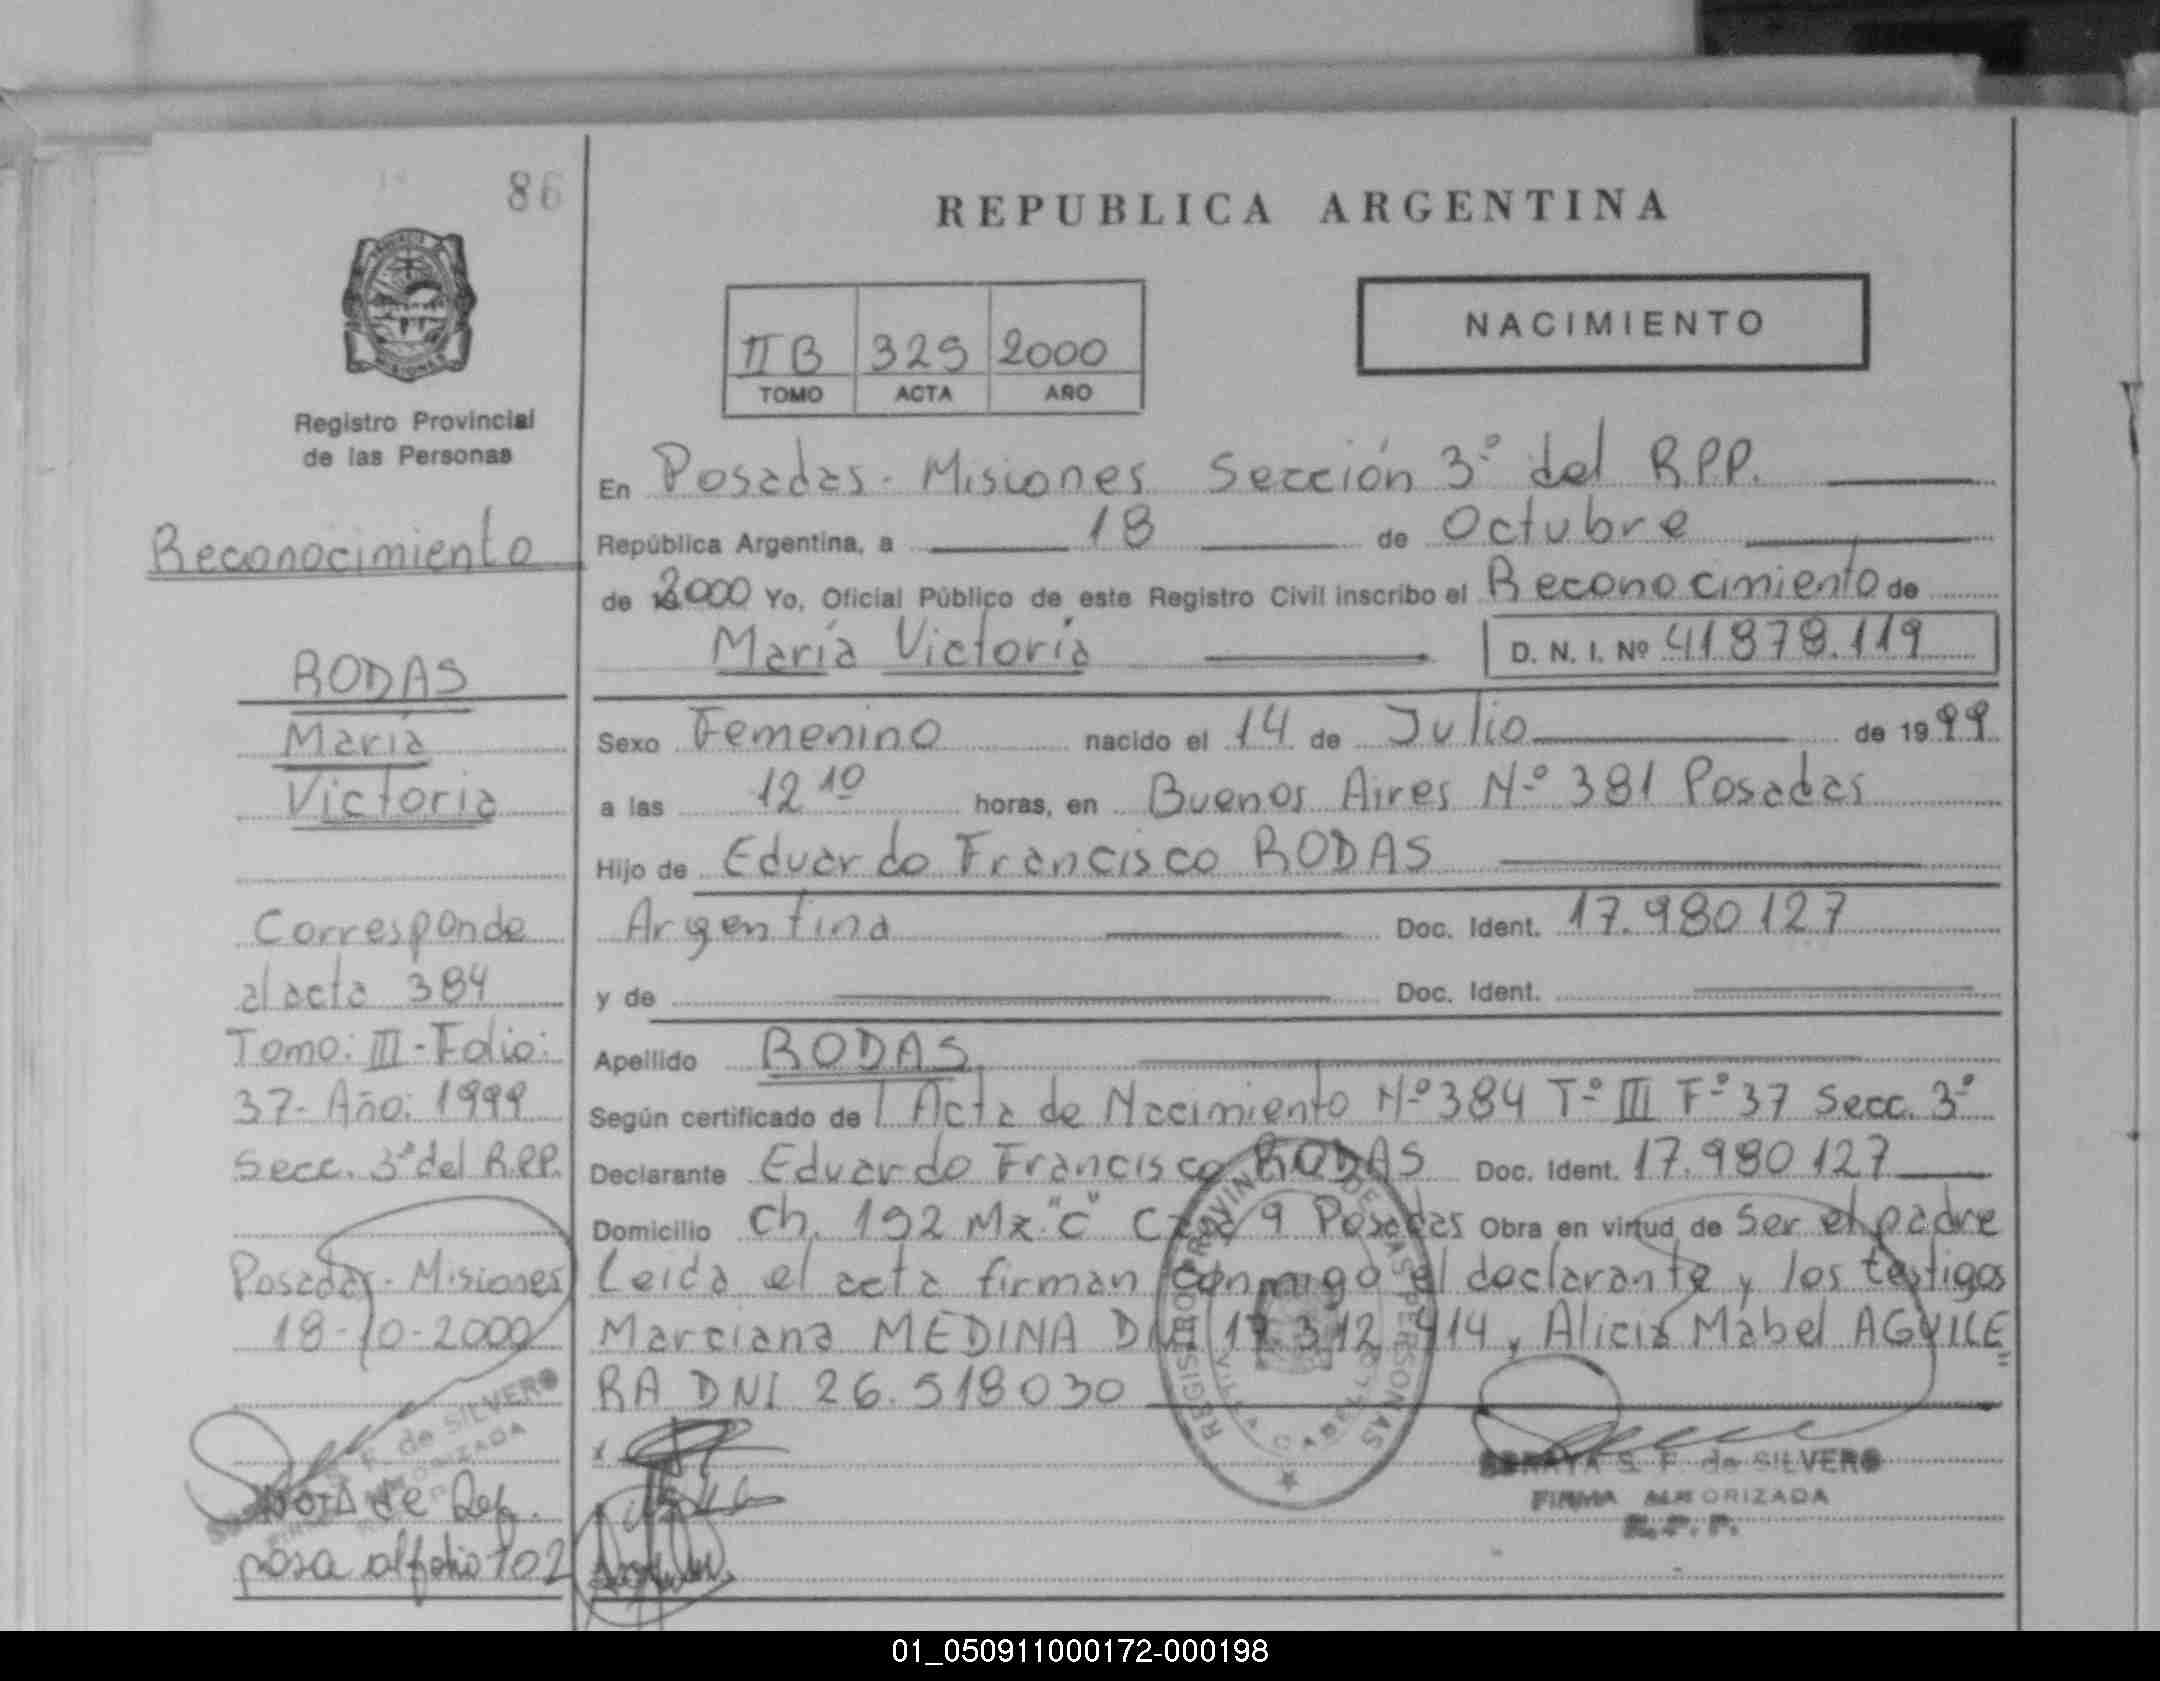 86
REPUBLICA ARGENTINA
NACIMIENTO
II B 329 2000
TOMO ACTA AÑO
Registro Provincial
de las Personas
Reconocimiento
RODAS
María
Victoria
Corresponde
al acta 384
Tomo: III - Folio:
37 - Año: 1999
Secc. 3ª del R.P.P.
Posadas - Misiones
18-10-2000
S. F. de SILVERO
Nota de Ref.
pasa al folio 102
En Posadas - Misiones Sección 3º del R.P.P.
República Argentina, a 18 de Octubre
de 2000 Yo, Oficial Público de este Registro Civil inscribo el Reconocimiento de
María Victoria D. N. I. Nº 41 878.119
Sexo Femenino nacido el 14 de Julio de 1999
a las 12 10 horas, en Buenos Aires Nº 381 Posadas
Hijo de Eduardo Francisco RODAS
Argentina Doc. Ident. 17.980 127
y de Doc. Ident.
Apellido RODAS
Según certificado de Acta de Nacimiento Nº 384 Tº III Fº 37 Secc. 3ª
Declarante Eduardo Francisco RODAS Doc. Ident. 17.980 127
Domicilio Ch. 192 Mz. "C" Casa 9 Posadas Obra en virtud de Ser el padre
Leida el acta firman conmigo el declarante y los testigos
Marciana MEDINA DNI 17 312 414, Alicia Mabel AGUILE
RA DNI 26.518 030
REGISTRO PROVINCIAL DE LAS PERSONAS
SORAYA S. F. de SILVERO
FIRMA AUTORIZADA
R. P. P.
01_050911000172-000198